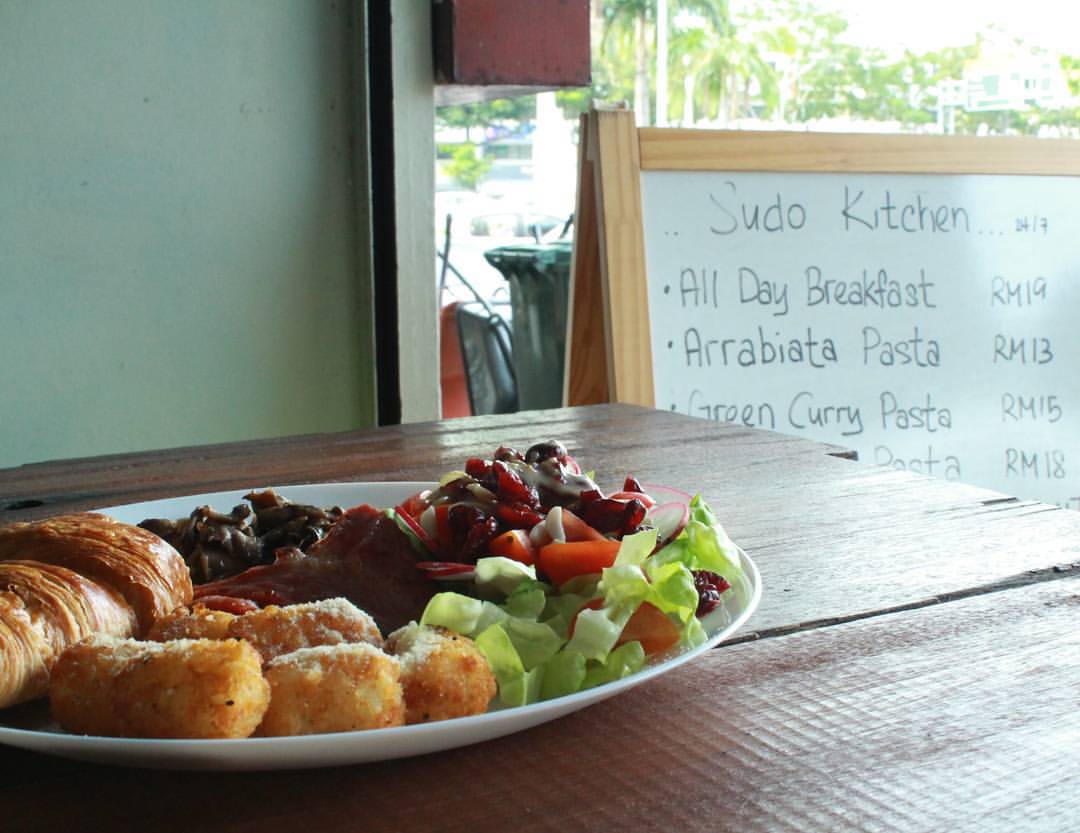 .. Sudo Kitchen... 24/7
• All Day Breakfast RM19
• Arrabiata Pasta RM13
• Green Curry Pasta RM15
Pasta RM18